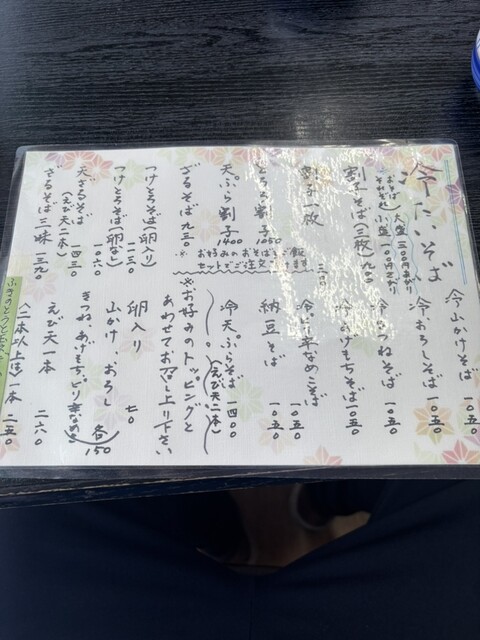 冷たいそば
おそば大盛 三〇〇円まし
それぞれ小盛 一〇〇円びき
割子そば(三枚) 九〇〇
割子一枚 三〇〇
とろろ割子 1050
天ぷら割子 1400
ざるそば 九三〇
※お好みのおそばとご飯
セットでご注文
つけとろそば(卵入り) 一一三〇
つけとろそば(卵なし) 一〇六〇
天ざるそば 一四三〇
(えび天二本)
ざるそば三味 一三九〇
冷山かけそば 一〇五〇
冷おろしそば 一〇五〇
冷きつねそば 一〇五〇
冷あげもちそば 一〇五〇
冷ピリ辛なめこそば 一〇五〇
納豆そば 一〇五〇
冷天ぷらそば 一四〇〇
(えび天二本)
※お好みのトッピングと
あわせてお召し上り下さい
卵入り 七〇
山かけ、おろし
きつね、あげもち、ピリ辛なめこ 各150
えび天一本 二六〇
(二本以上は)一本 二五〇
ふきのとうと